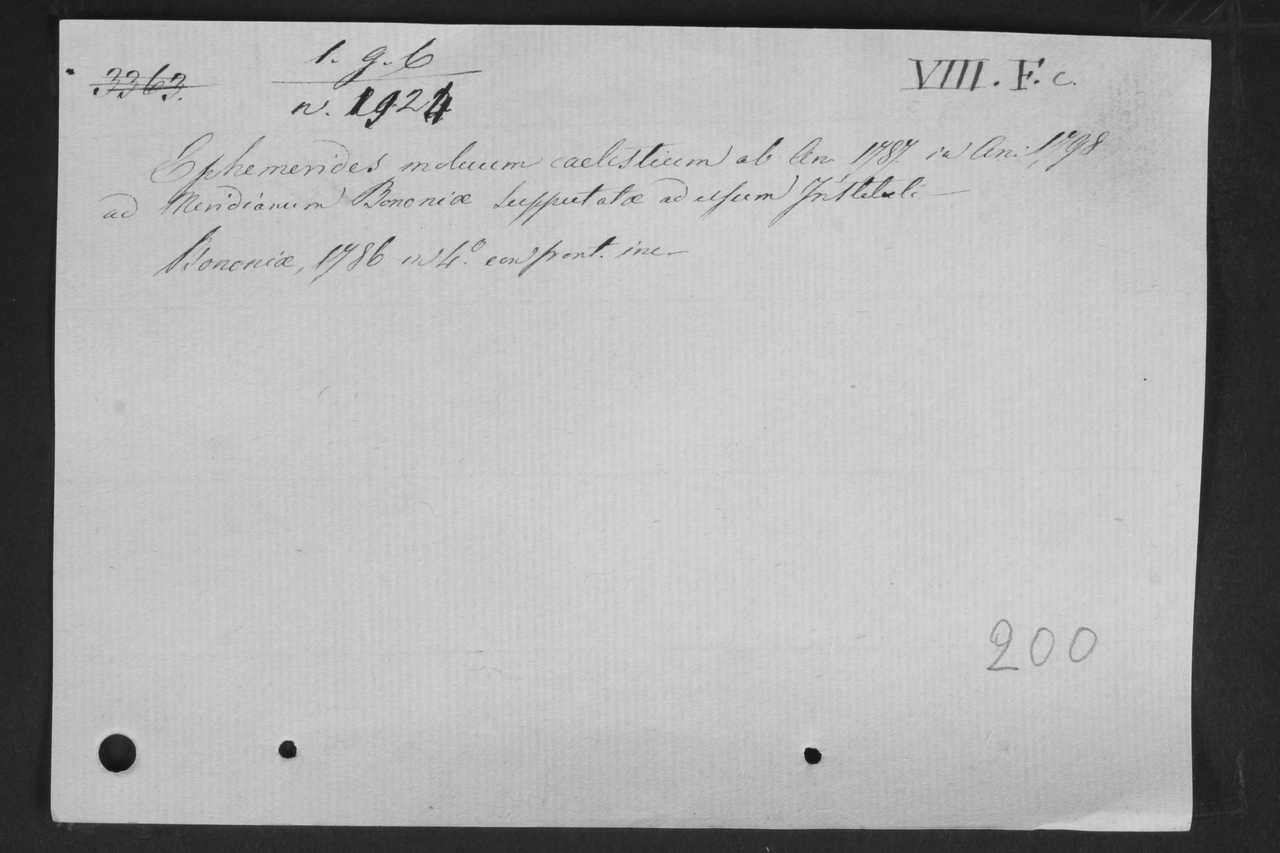 3363.
1. g. 6
n. 1924
VIII. F. c.
Ephemerides motuum caelestium ab An. 1787. in An: 1798
ad Meridianum Bononiæ supputatæ ad usum Instituti
Bononiæ, 1786 in 4.º con front. inc
200